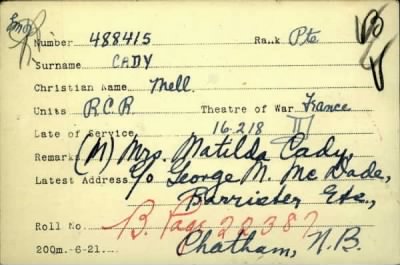 Number 488415 Rank Pte
Surname CADY
Christian Name Mell.
Units R.C.R Theatre of War France
Date of Service 16-2-18
Remarks (M) Mrs. Matilda Cady,
Latest Address c/o George M. McDade,
Barrister Etc.,
Roll No B. Page 20387
200m.-6-21. Chatham, N.B.